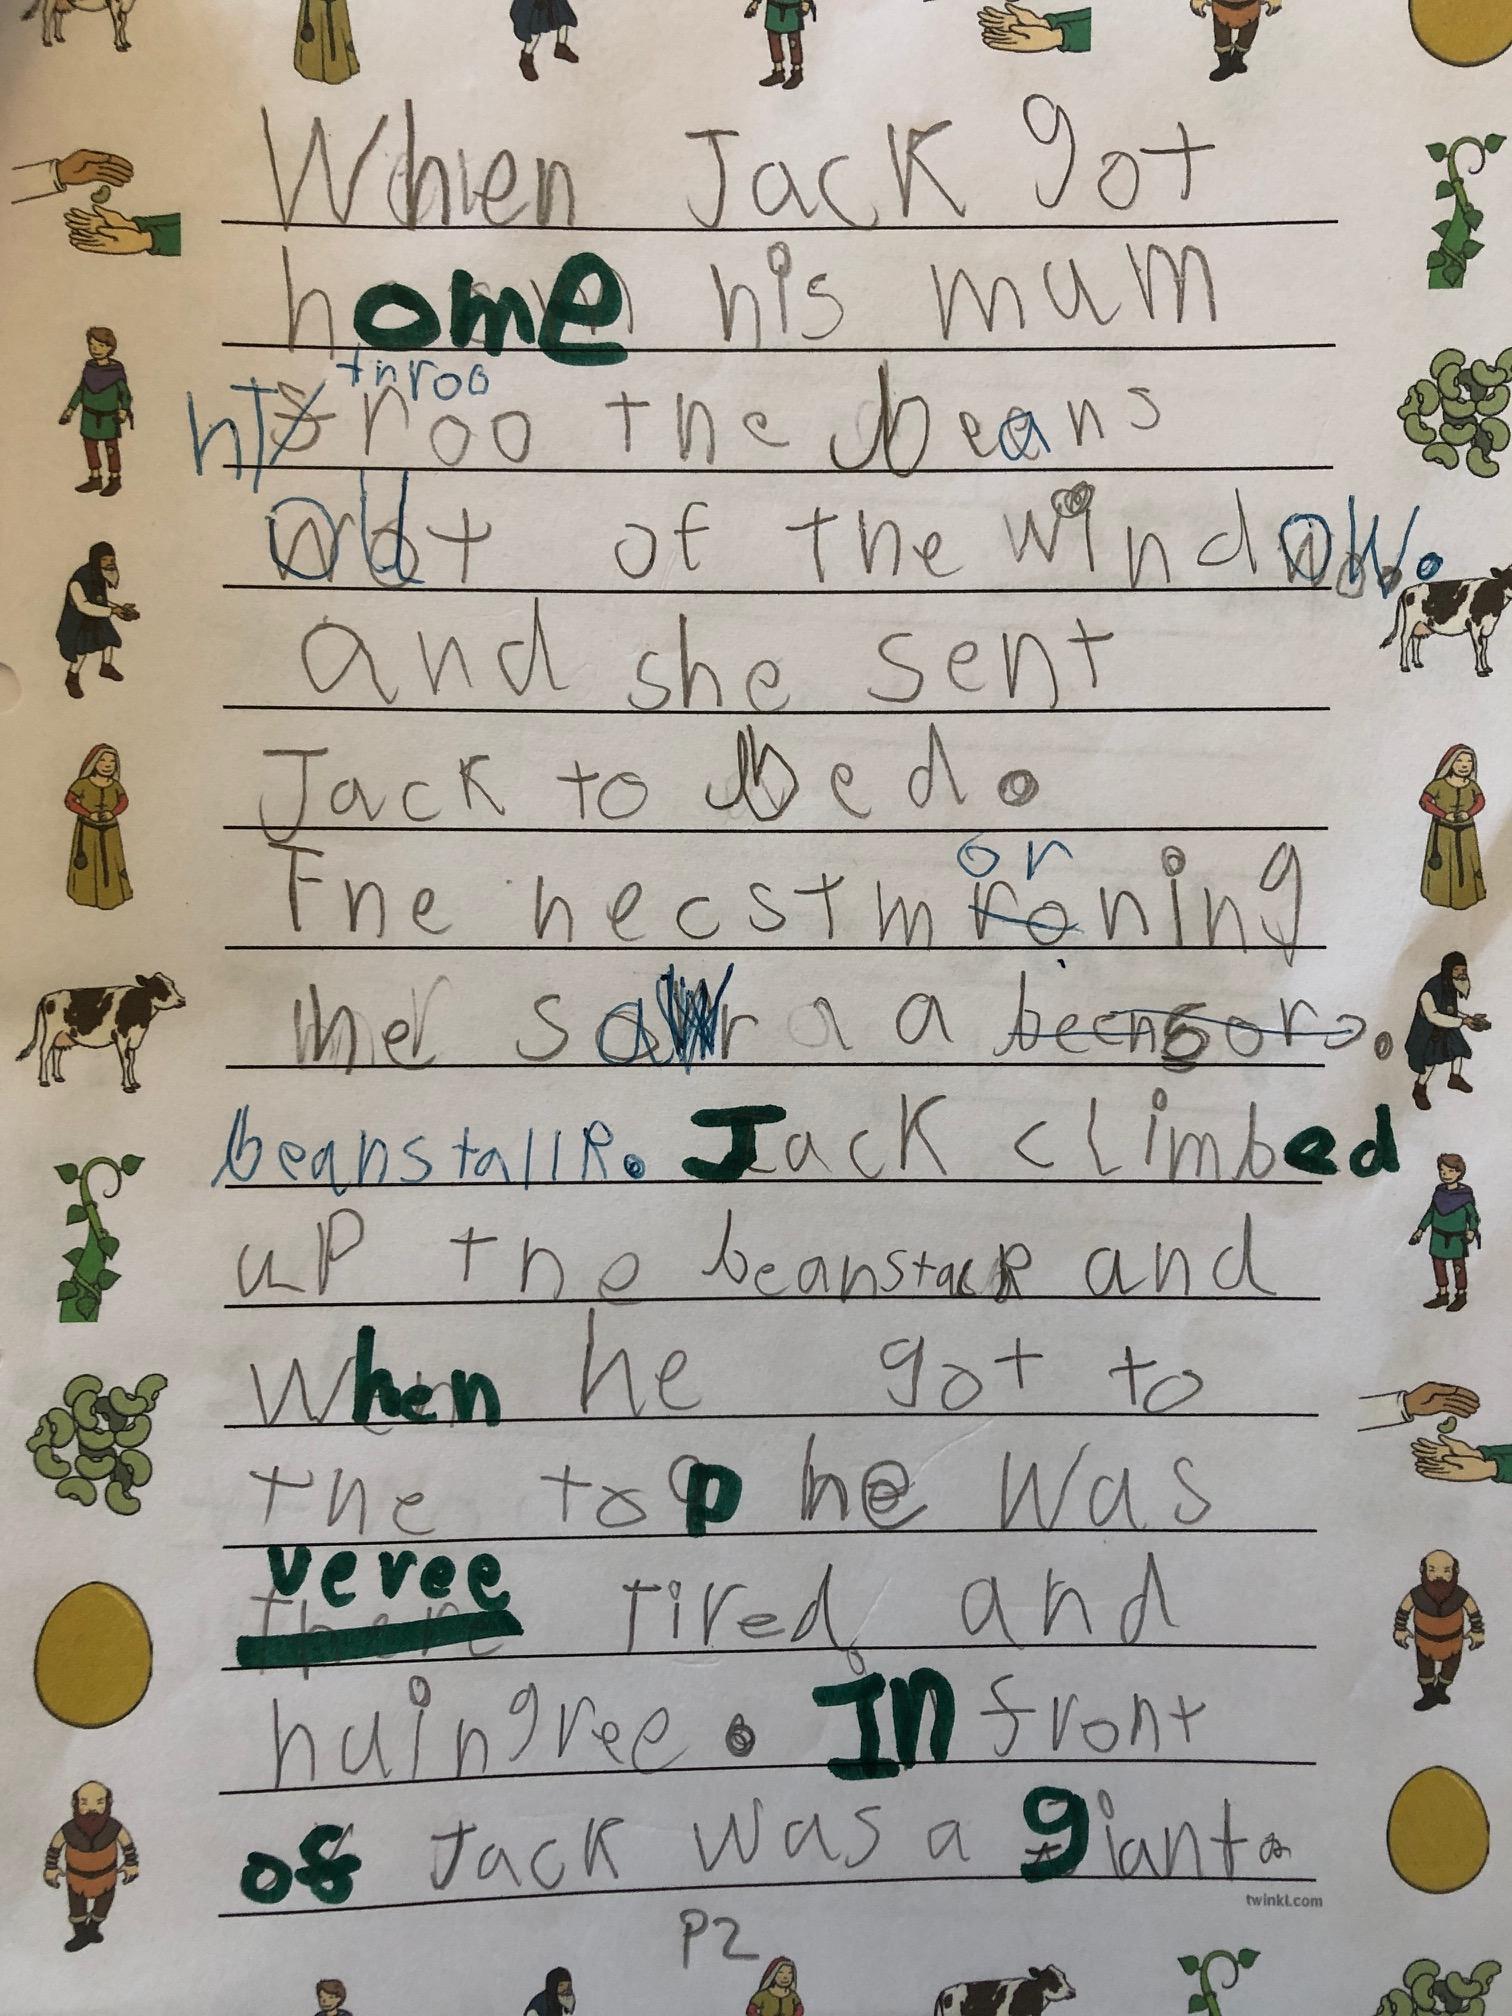 When Jack got
home his mum
throo
throo the beans
out of the window.
and she sent
Jack to bed.
The necst morning
he saw a a beensoro.
beanstallk. Jack climbed
up the beanstack and
when he got to
the top he was
veree
there tired and
huingree. In front
of Jack was a giant.
twinkl.com
P2